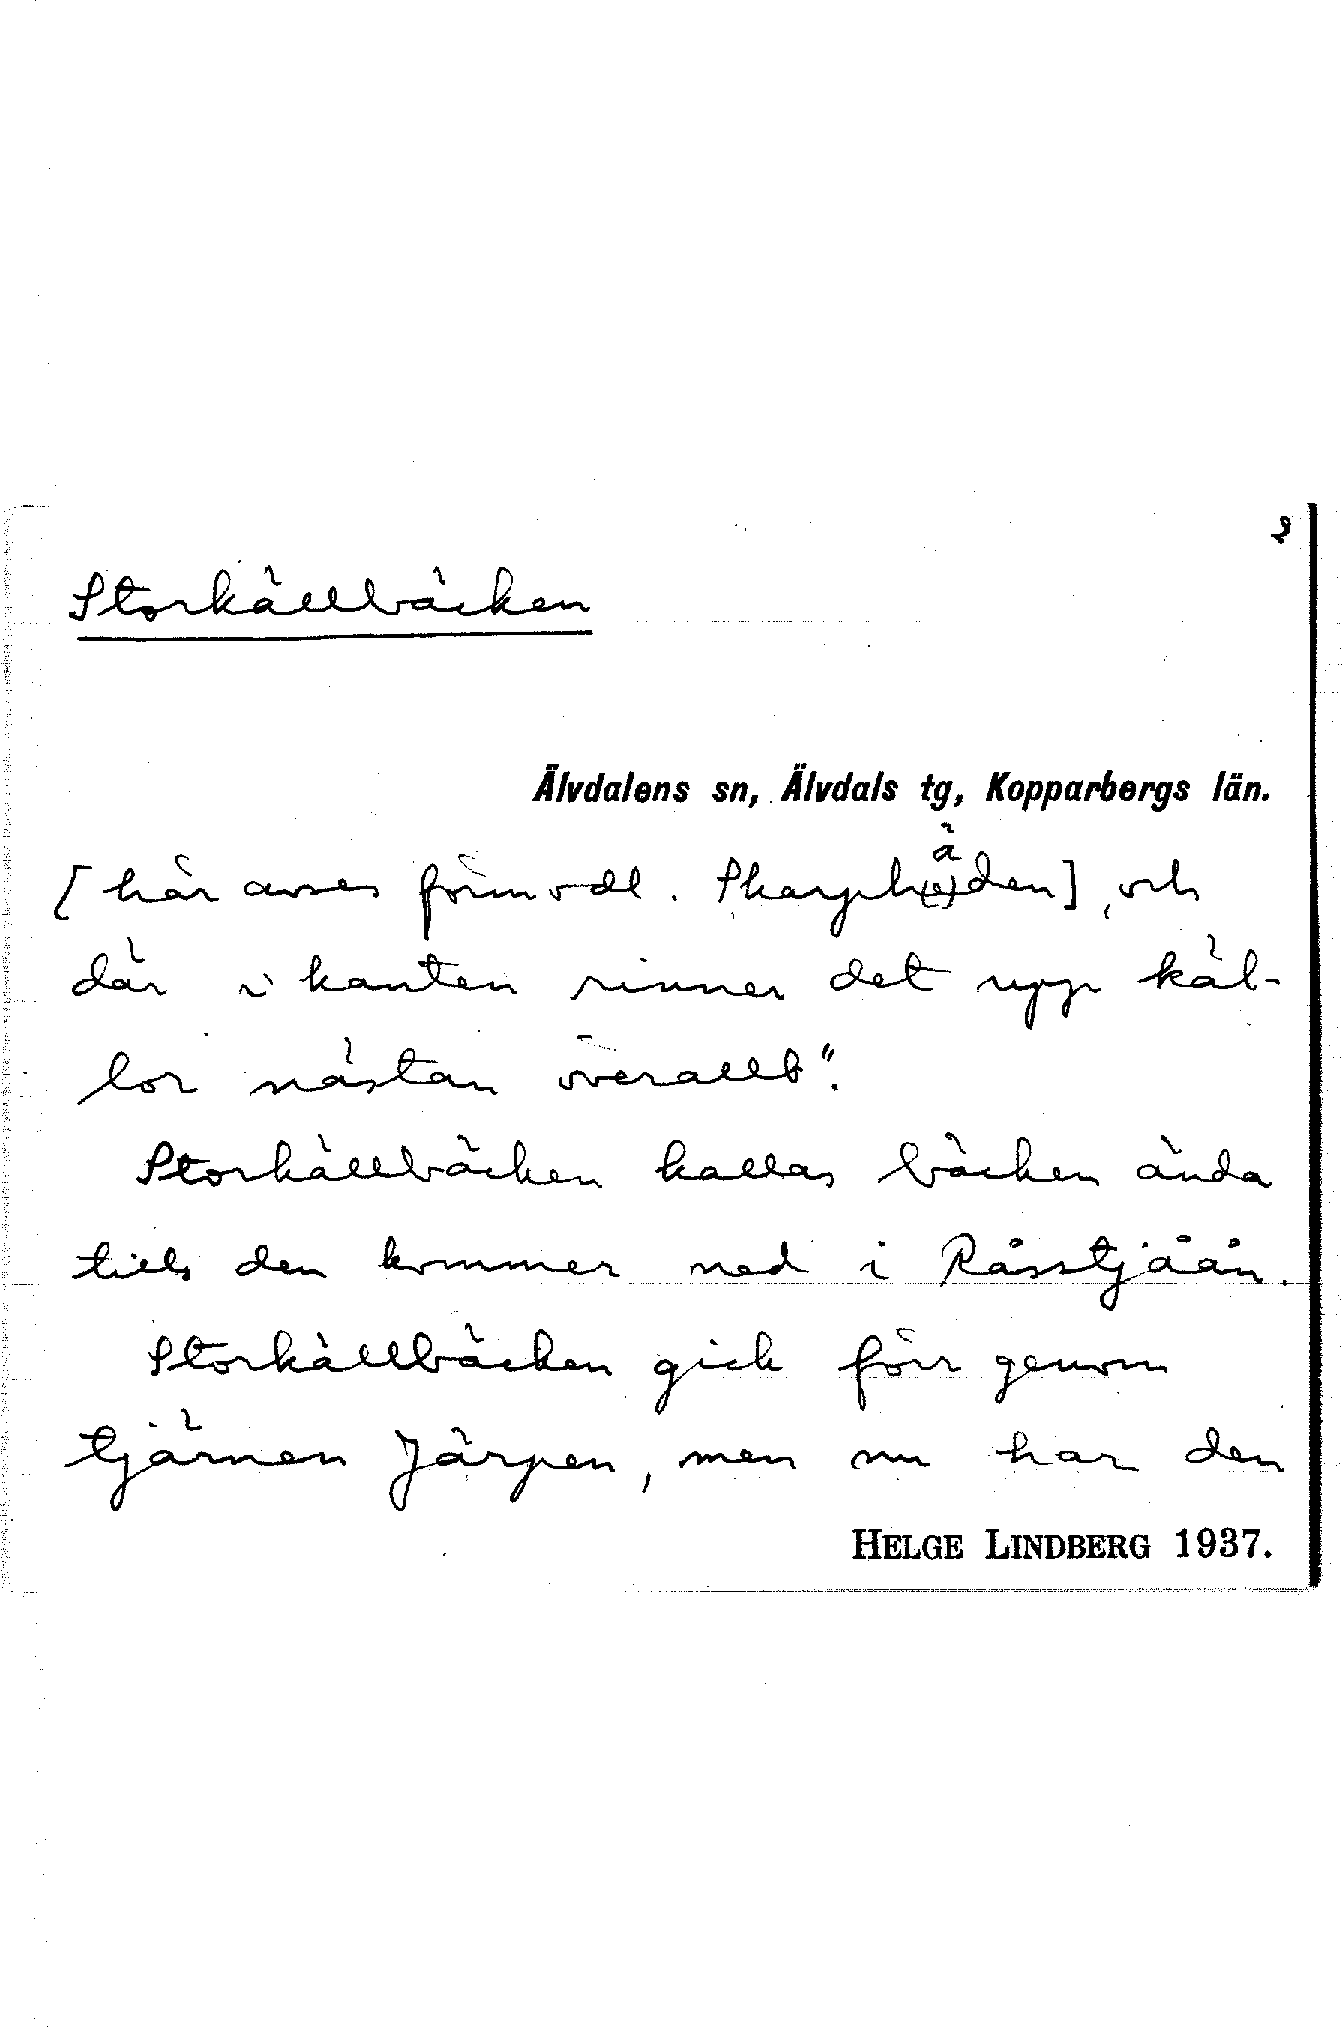 2
Storkällbäcken
Älvdalens sn, Älvdals tg, Kopparbergs län.
[här avses förmodl. Skarph(e)äden], och
där i kanten rinner det upp käl-
lor nästan överallt".
Storkällbäcken kallas bäcken ända
tills den kommer ned i Råsstjåån.
Storkällbäcken gick förr genom
tjärnen Järpen, men nu har den
HELGE LINDBERG 1937.